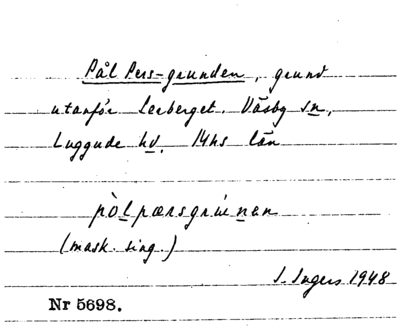 Pål Pers-grunden, grund
utanför Lerberget. Väsby sn,
Luggude hd. Mhs län
pòlpærsgrúnən
(mask. sing.)
I. Ingers 1948
Nr 5698.